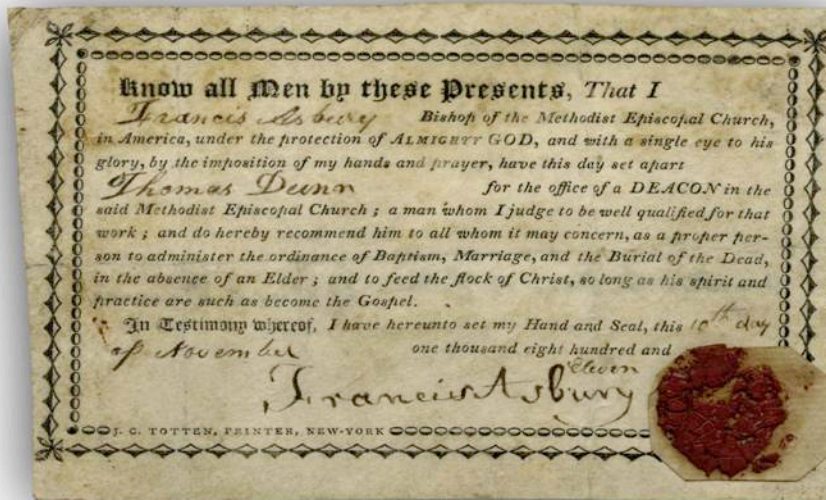 Know all Men by these Presents, That I
Francis Asbury Bishop of the Methodist Episcopal Church,
in America, under the protection of ALMIGHTY GOD, and with a single eye to his
glory, by the imposition of my hands and prayer, have this day set apart
Thomas Dunn for the office of a DEACON in the
said Methodist Episcopal Church ; a man whom I judge to be well qualified for that
work ; and do hereby recommend him to all whom it may concern, as a proper per-
son to administer the ordinance of Baptism, Marriage, and the Burial of the Dead,
in the absence of an Elder ; and to feed the flock of Christ, so long as his spirit and
practice are such as become the Gospel.
In Testimony whereof, I have hereunto set my Hand and Seal, this 10th day
of November one thousand eight hundred and
eleven
Francis Asbury
J. C. TOTTEN, PRINTER, NEW-YORK